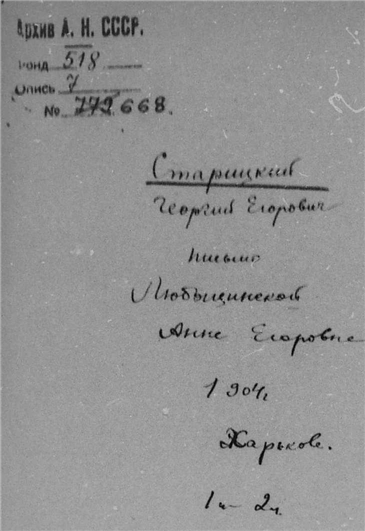 Архив А. Н. СССР.
Фонд 518
Опись 7
№ 772 668.
Старицкий
Георгий Егорович
письмо
Любощинской
Анне Егоровне
1904г
Харькове.